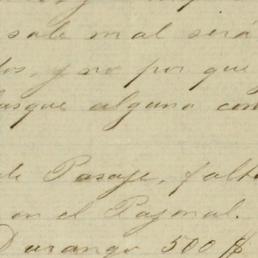 sale mal será
os, y no por que
busque alguna con
de Pasaje, falt
en el Pajonal.
Durango 500 $